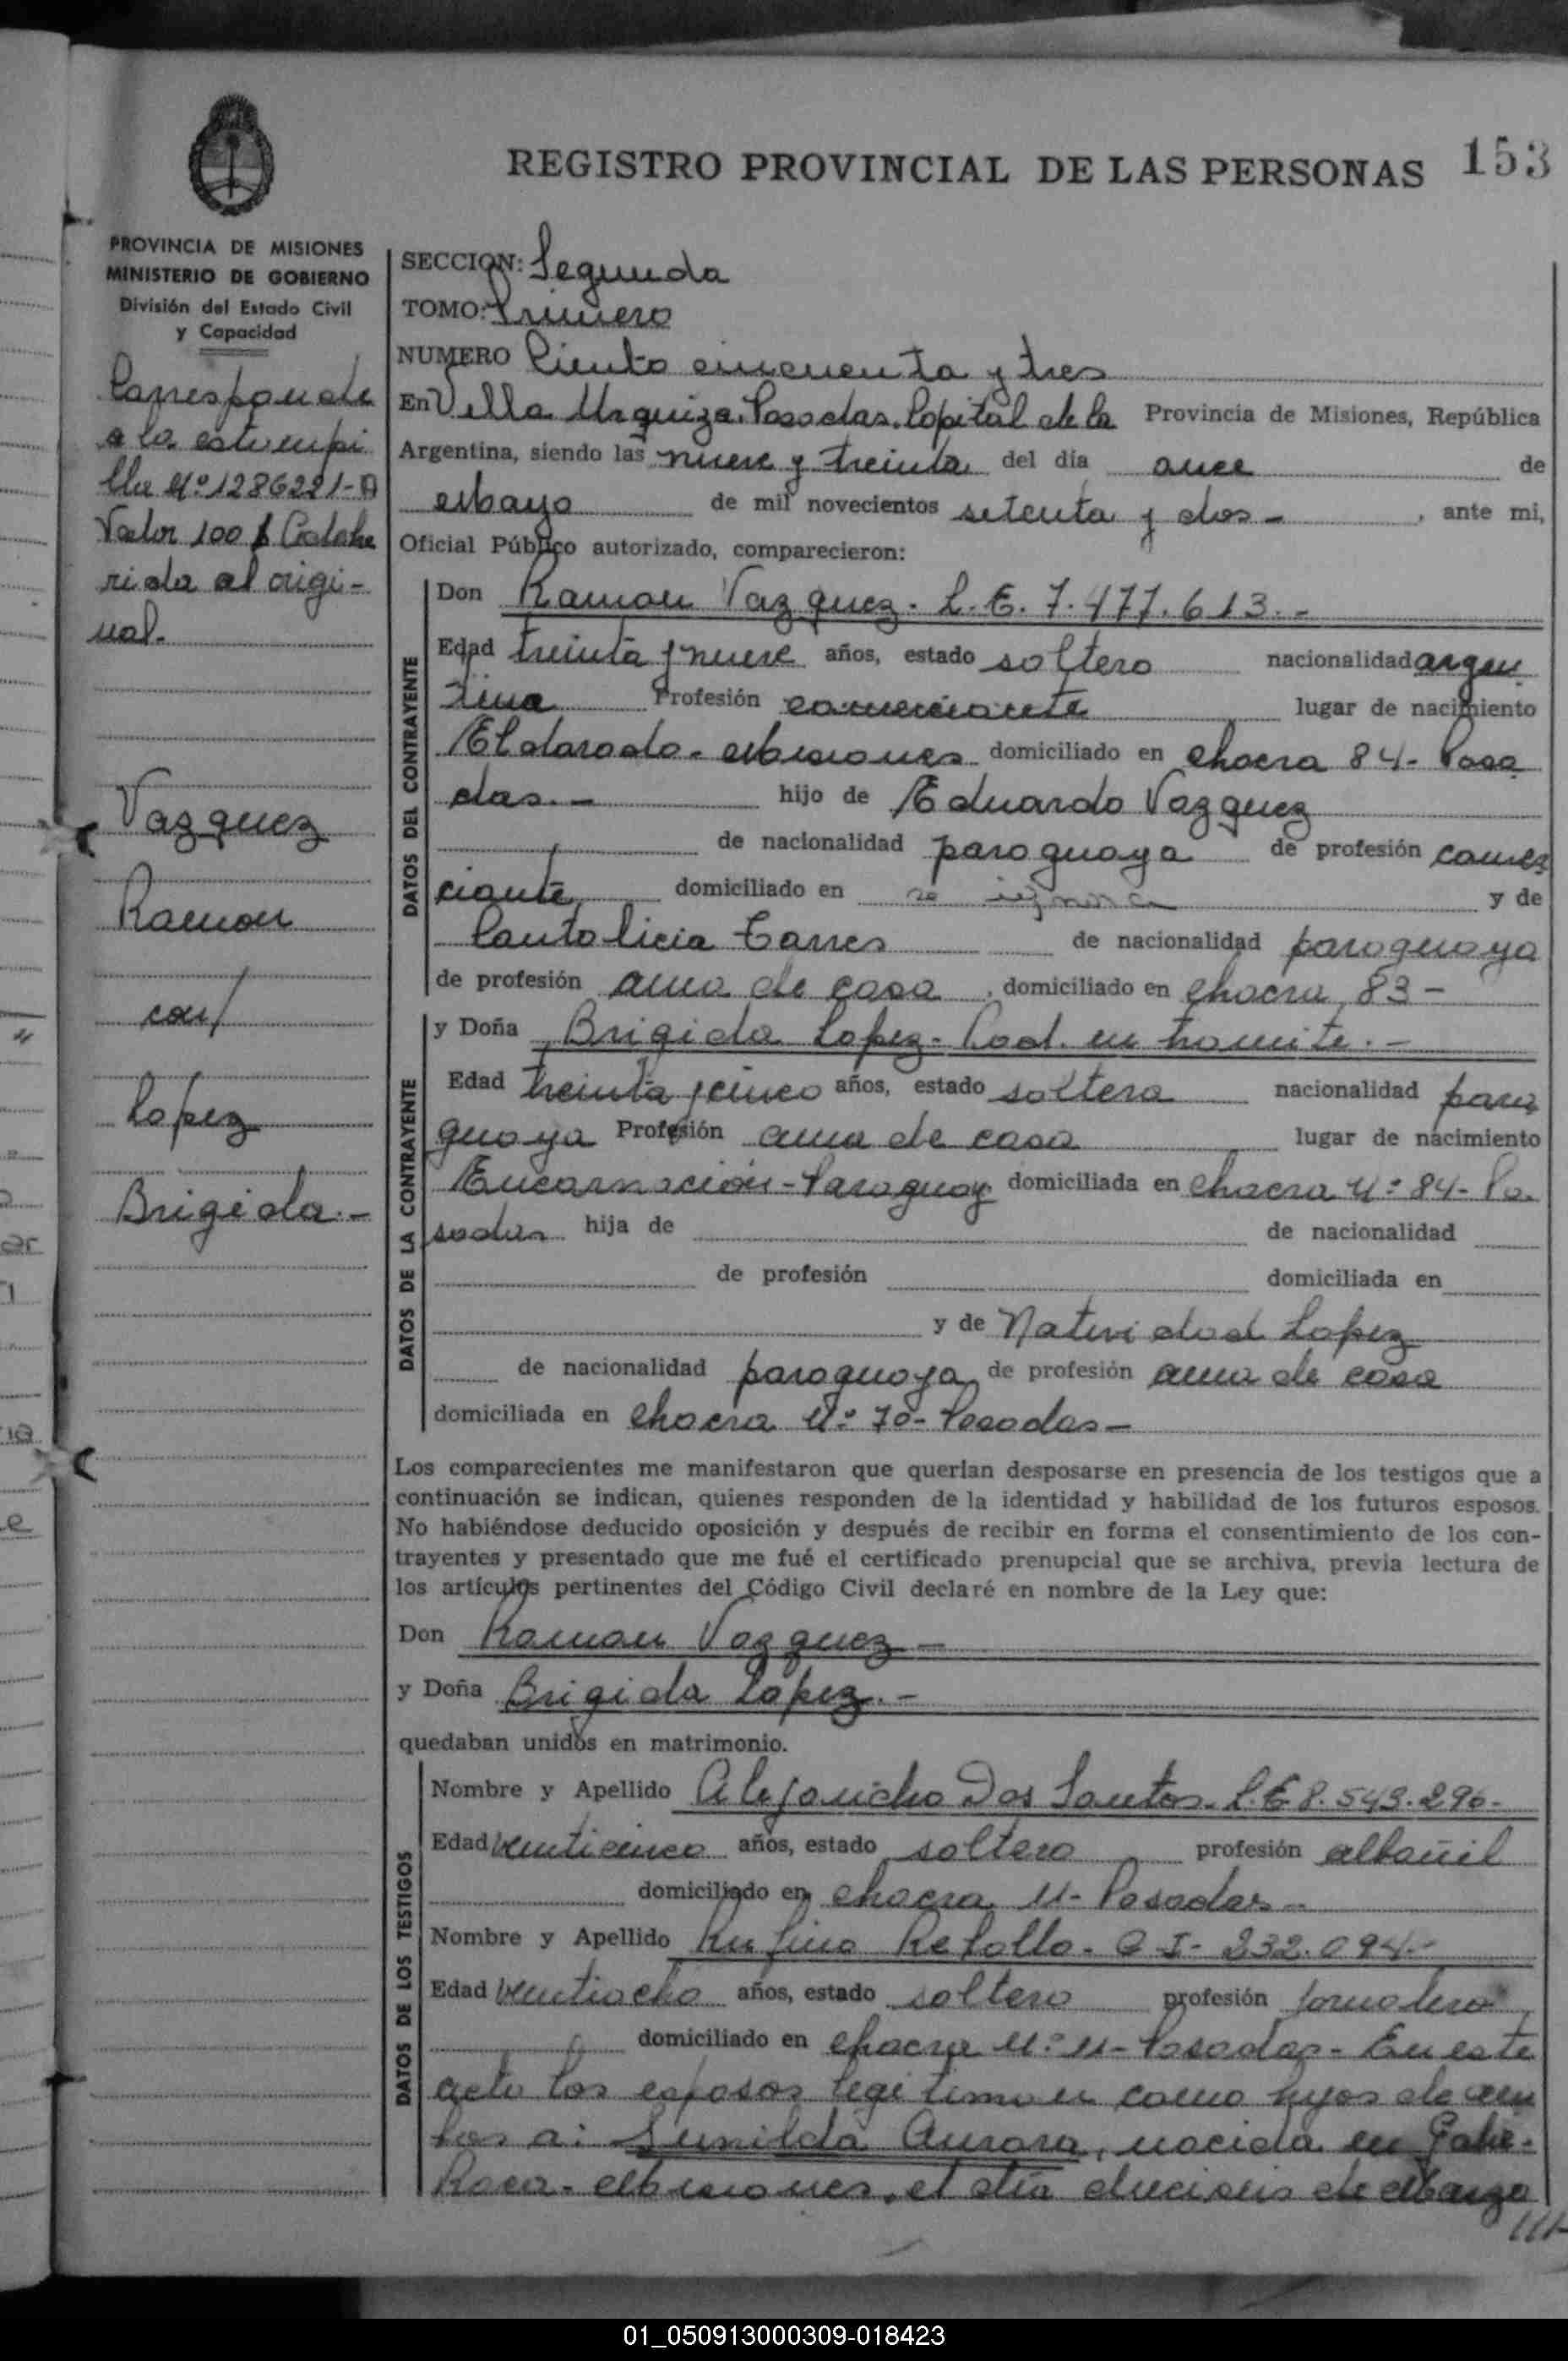 REGISTRO PROVINCIAL DE LAS PERSONAS 153
PROVINCIA DE MISIONES
MINISTERIO DE GOBIERNO
División del Estado Civil
y Capacidad
Corresponde
a la estampi
lla Nº 1286221-A
Valor 100 $
rida al origi-
nal.
Vazquez
Ramon
con
Lopez
Brigida.-
SECCION: Segunda
TOMO: Primero
NUMERO Ciento cincuenta y tres
En Villa Urquiza. Posadas. Capital de la Provincia de Misiones, República
Argentina, siendo las nueve y treinta del día once de
Mayo de mil novecientos setenta y dos- , ante mi,
Oficial Público autorizado, comparecieron:
DATOS DEL CONTRAYENTE
Don Ramon Vazquez. L.E. 7.477.613.-
Edad treinta y nueve años, estado soltero nacionalidad argen
tina Profesión comerciante lugar de nacimiento
Eldorado- Misiones domiciliado en chacra 84- Posa
das.- hijo de Eduardo Vazquez
de nacionalidad paraguaya de profesión comer
ciante domiciliado en se ignora y de
Cantalicia Torres de nacionalidad paraguaya
de profesión ama de casa , domiciliado en chacra 83-
DATOS DE LA CONTRAYENTE
y Doña Brigida Lopez- Ced. en tramite.-
Edad treinta y cinco años, estado soltera nacionalidad para
guaya Profesión ama de casa lugar de nacimiento
Encarnación-Paraguay domiciliada en chacra Nº 84- Po.
sadas hija de de nacionalidad
de profesión domiciliada en
y de Natividad Lopez
de nacionalidad paraguaya de profesión ama de casa
domiciliada en chacra Nº 70- Posadas-
Los comparecientes me manifestaron que querían desposarse en presencia de los testigos que a
continuación se indican, quienes responden de la identidad y habilidad de los futuros esposos.
No habiéndose deducido oposición y después de recibir en forma el consentimiento de los con-
trayentes y presentado que me fué el certificado prenupcial que se archiva, previa lectura de
los artículos pertinentes del Código Civil declaré en nombre de la Ley que:
Don Ramon Vazquez-
y Doña Brigida Lopez.-
quedaban unidos en matrimonio.
DATOS DE LOS TESTIGOS
Nombre y Apellido Alejandro Dos Santos. L.E 8.543.290-
Edad veinticinco años, estado soltero profesión albañil
domiciliado en chacra 11- Posadas-
Nombre y Apellido Rufino Rebollo- C I- 232.094.-
Edad veintiocho años, estado soltero profesión jornalero
domiciliado en chacra Nº 11- Posadas- En este
acto los esposos legitiman como hijos de am
bos a: Sunilda Aurora, nacida en Gdor.
Roca- Misiones, el día dieciseis de Marzo
///-
01_050913000309-018423